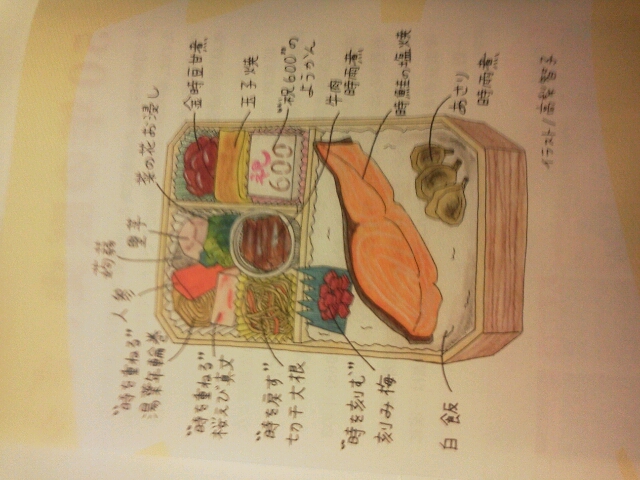 "時を重ねる"
湯葉年輪巻
人参
蒟蒻
里芋
菜の花お浸し
金時豆甘煮
玉子焼
"祝600"の
ようかん
牛肉
時雨煮
時鮭の塩焼
あさり
時雨煮
祝
600
"時を重ねる"
桜えび真丈
"時を戻す"
切干大根
"時を刻む"
刻み梅
白飯
イラスト/